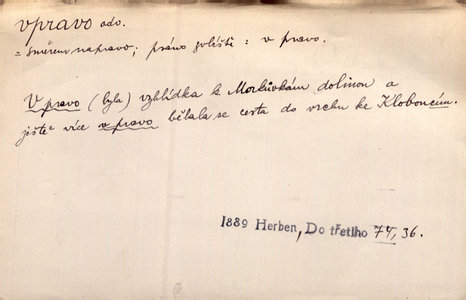 vpravo adv.
= směrem napravo; psáno zvlášť: v pravo.
V pravo (byla) vyhlídka k Morkůvkám dolinou a
ještě více v pravo bělala se cesta do vrchu ke Kloboucům.
1889 Herben, Do třetího 74, 36.